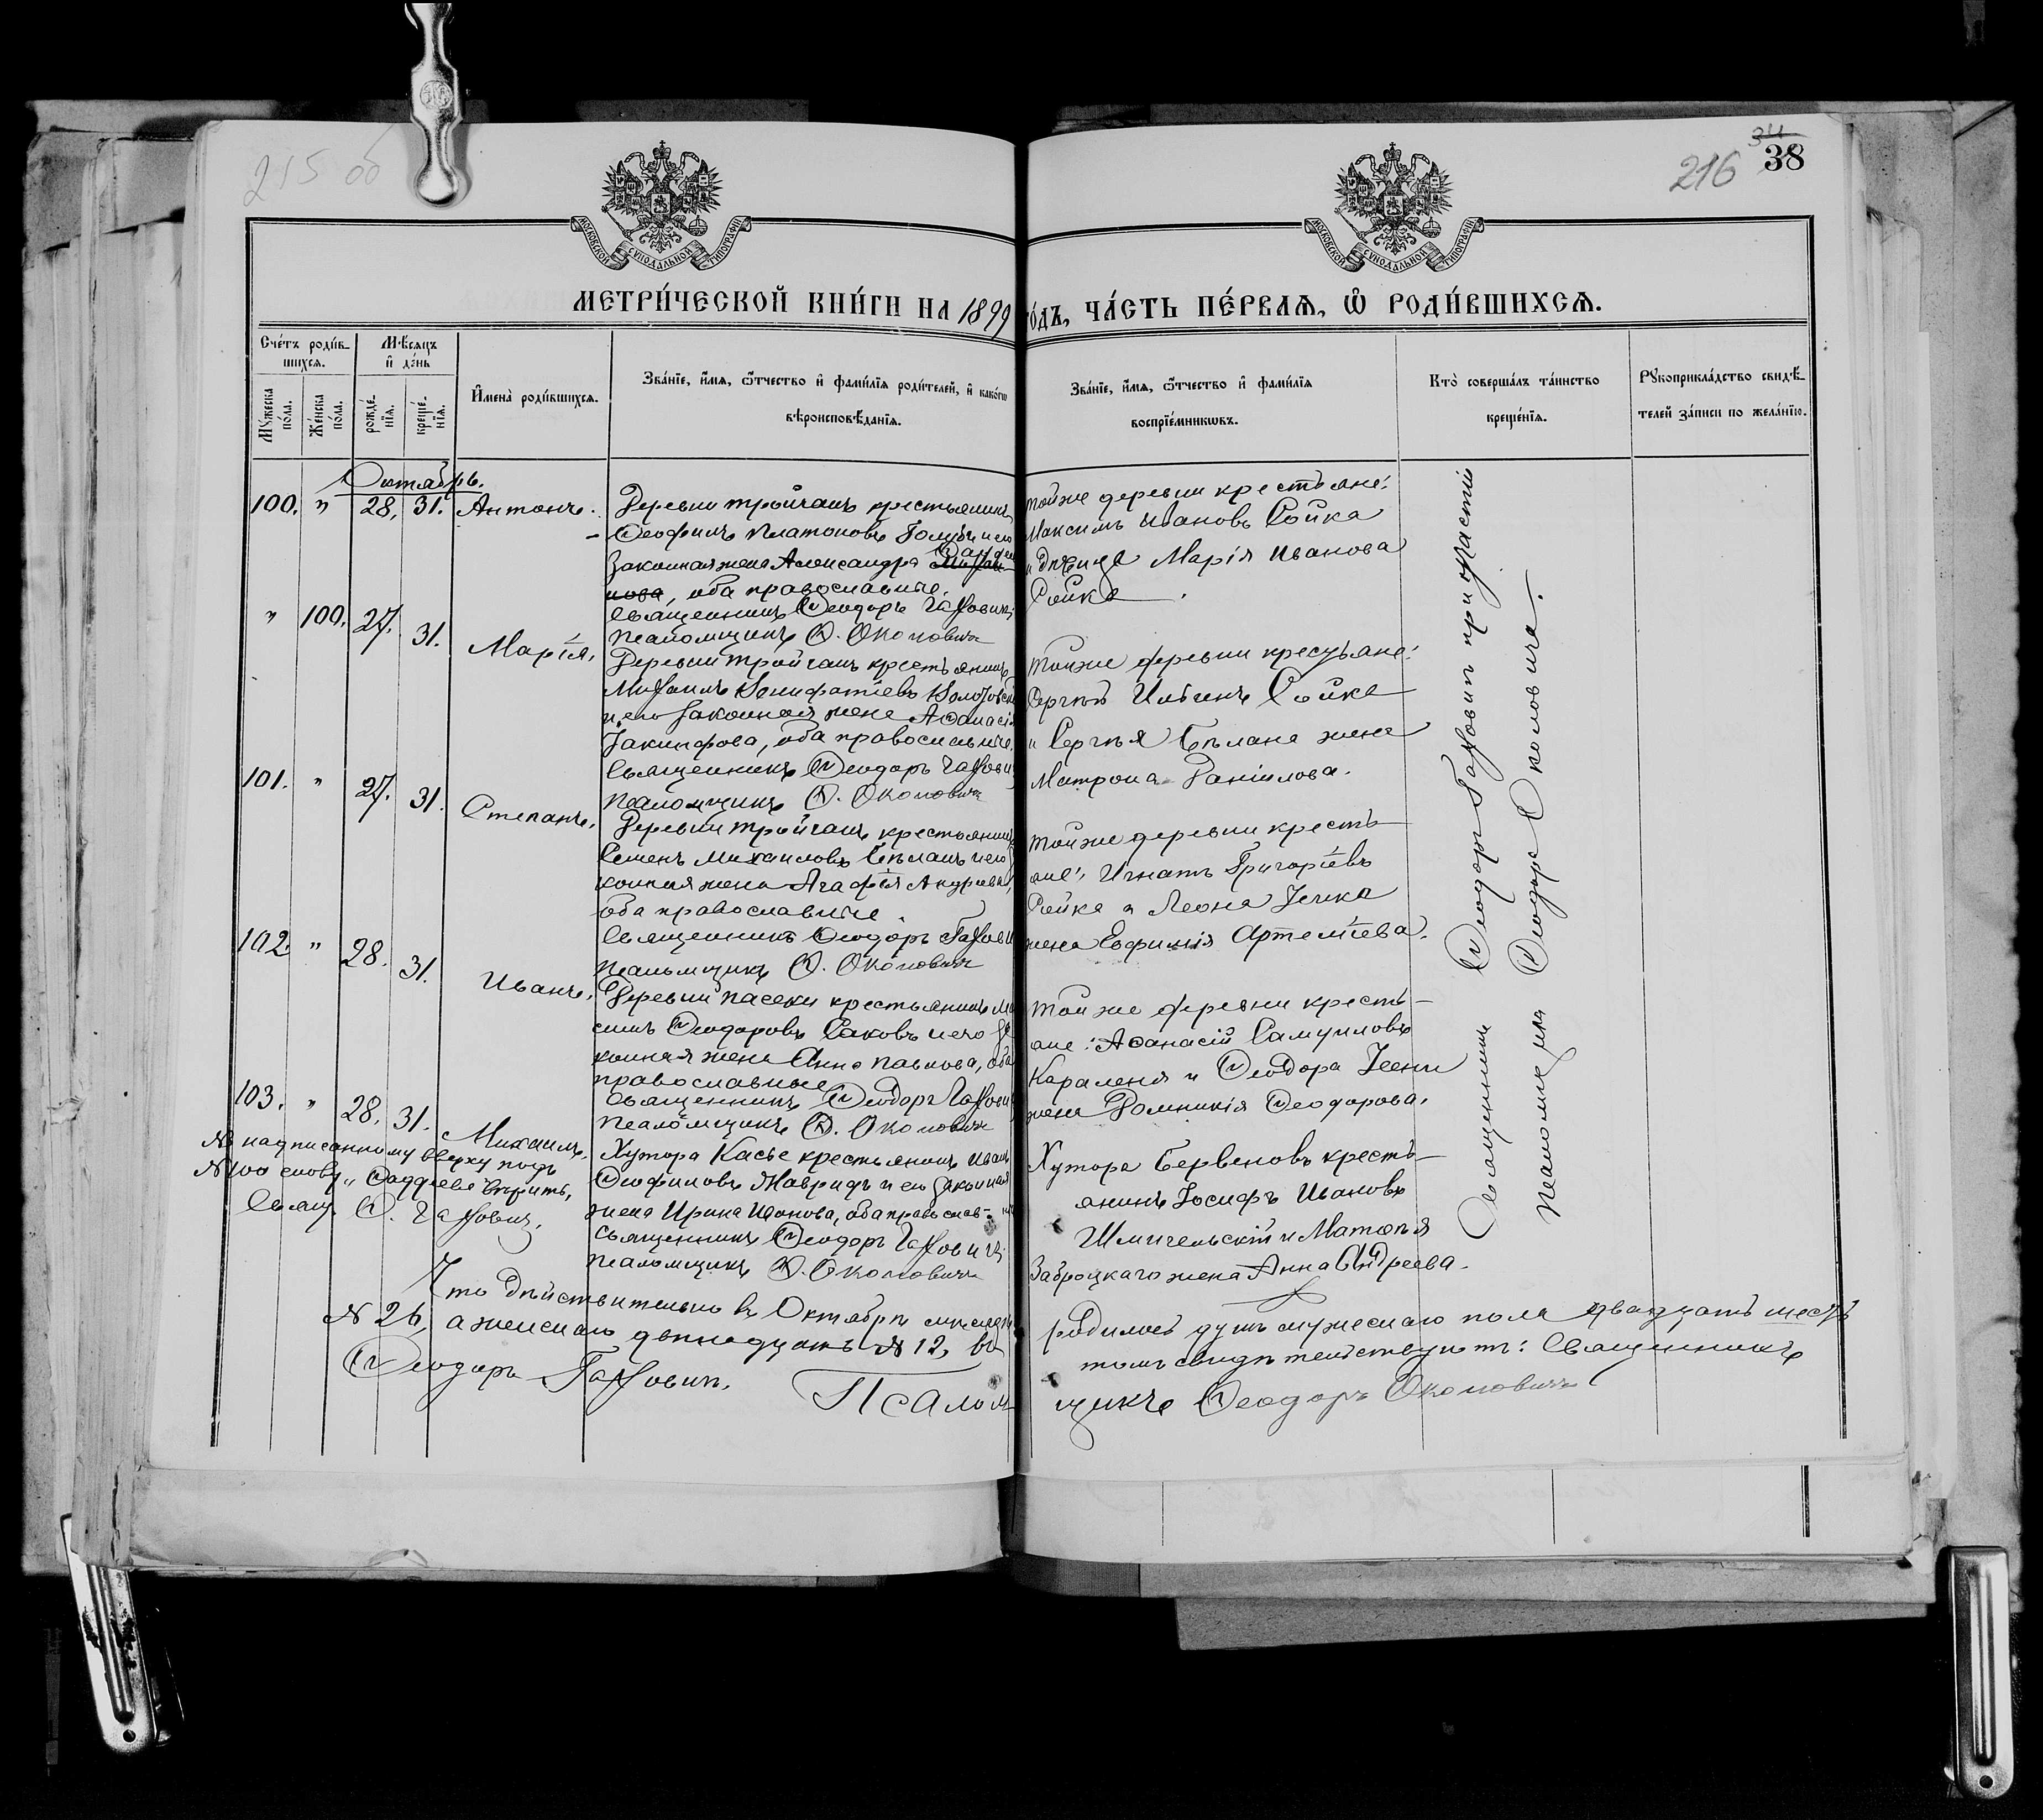 215 об
216
34
38
МОСКОВСКОЙ СѴНОДАЛЬНОЙ ТИПОГРАФІИ
МОСКОВСКОЙ СѴНОДАЛЬНОЙ ТИПОГРАФІИ
МЕТРИ́ЧЕСКОЙ КНИ́ГИ НА 1899 го́дъ, ЧА́СТЬ ПЕ́РВАѦ, Ѡ҆ РОДИ́ВШИХСѦ.
Счéтъ роди́в-
шихся.
Мѣ́сяцъ
и҆ дéнь
Мꙋ́жеска
по́ла.
Жéнска
по́ла.
рождé-
нїѧ.
крещé-
нїѧ.
И҆мена̀ роди́вшихсѧ.
Зва́нїе, и҆́мѧ, ѻ҆́тчество и҆ фами́лїѧ роди́телей, и҆ како́гѡ
вѣроисповѣ́данїѧ.
Зва́нїе, и҆́мѧ, ѻ҆́тчество и҆ фами́лїѧ
воспрїе́мникѡвъ.
Кто̀ соверша́лъ та́инство
креще́нїѧ.
Рꙋкоприкла́дство свидѣ́-
телей за́писи по жела́нїю.
Октябрь.
100. " 28. 31. Антонъ.
Деревни Тройчанъ крестьянинъ
Ѳеофилъ Платоновъ Голубъ и его
законная жена Александра
Ѳаддеева
нова, оба православные.
Священникъ Ѳеодоръ Гахович
Псаломщикъ Ѳ. Околовичъ
Той же деревни крестьяне:
Максимъ Ивановъ Сойка
и дѣвица Марія Иванова
Сойка.
" 100. 27. 31. Марія.
Деревни Тройчанъ крестьянинъ
Михаилъ Бонифатіевъ
и его законная жена Аѳанасія
Іакинфова, оба православные.
Священникъ Ѳеодоръ Гахович
Псаломщикъ Ѳ. Околовичъ
Той же деревни крестьяне:
Сергѣй Ильинъ Сойка
и Сергѣя Бѣлана жена
Матрона Даніилова.
101. " 27. 31. Степанъ.
Деревни Тройчанъ крестьянинъ
Семенъ Михаиловъ Бѣланъ и его
конная жена Агафія Андреева,
оба православные.
Священникъ Ѳеодоръ Гахович
Псаломщикъ Ѳ. Околовичъ
Той же деревни кресть-
яне: Игнатъ Григоріевъ
Сойка и Леона
жена Евфимія Артеміева.
102. " 28. 31. Иванъ.
Деревни Пасеки крестьянинъ
симъ Ѳеодоровъ Саковъ и его за
конная жена Анна Павлова, оба
православные
Священникъ Ѳеодоръ Гахович
Псаломщикъ Ѳ. Околовичъ
Той же деревни кресть-
яне: Аѳанасій Самуиловъ
Караленя и Ѳеодора
жена Домникія Ѳеодорова.
103. " 28. 31. Михаилъ.
Хутора Касье крестьянинъ Иванъ
Ѳеофиловъ Жавридъ и его законная
жена Ирина Иванова, оба православ-
Священникъ Ѳеодоръ Гахович
Псаломщикъ Ѳ. Околовичъ
Хутора Бервеновъ кресть-
янинъ Іосифъ Ивановъ
и Матѳѣя
Заброцкаго жена Анна Андреева.
надписанному вверху подъ
№ 100 слову "Ѳаддеева" вѣрить,
Свящ. Ѳ. Гахович.
Священникъ Ѳеодоръ Гахович при участіи
Псаломщика Ѳеодора Околовича.
Что дѣйствительно въ Октябрѣ мѣсяцѣ родилось душъ мужескаго пола двадцать шесть
№ 26, а женскаго двѣнадцать № 12, въ томъ свидѣтельствуютъ: Священникъ
Ѳеодоръ Гахович. Псаломщикъ Ѳеодоръ Околовичъ